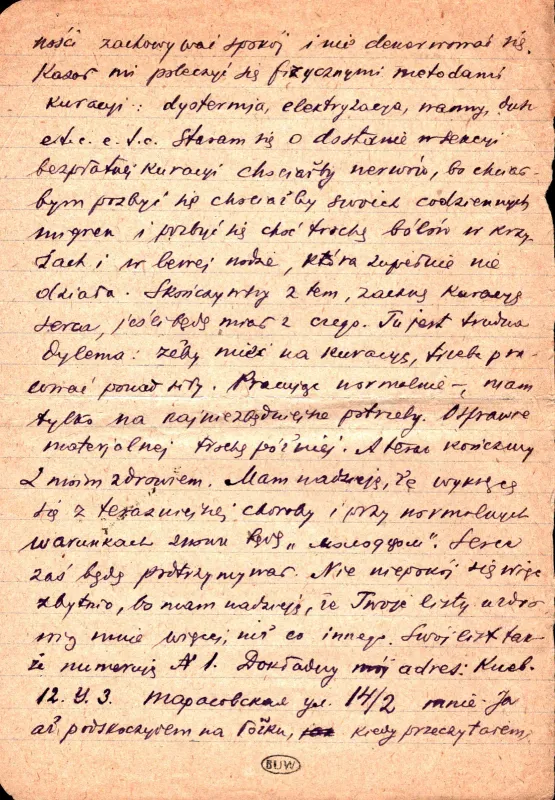 ności zachowywać spokój i nie denerwować się.
Kazał mi poleczyć się fizycznymi metodami
kuracji: dyatermja, elektryzacja, wanny,
e.t.c. e.t.c. Staram się o dostanie w sekcji
bezpłatnej kuracji chociażby nerwów, bo chciał-
bym pozbyć się chociażby swoich codziennych
migren i pozbyć się choć trochę bólów w krzy-
żach i w lewej nodze, która zupełnie nie
działa. Skończywszy z tem, zacznę kurację
serca, jeśli będę miał z czego. Tu jest trudna
dylema: żeby mieć na kurację, trzeba pra-
cować ponad siły. Pracując normalnie –, mam
tylko na najniezbędniejsze potrzeby. O sprawie
materjalnej trochę później. A teraz kończmy
z moim zdrowiem. Mam nadzieję, że wykręcę
się z terazniejszej choroby i przy normalnych
warunkach znowu będę „молодцом". Serce
zaś będę podtrzymywał. Nie niepokój się więc
zbytnio, bo mam nadzieję, że Twoje listy uzdro-
wią mnie więcej, niż co innego. Swój list tak-
że numeruję № 1. Dokładny mój adres: Киев.
12. У.З. Тарасовская ул. 14/2 mnie. Ja
aż podskoczyłem na łóżku, kiedy przeczytałem,
BUW